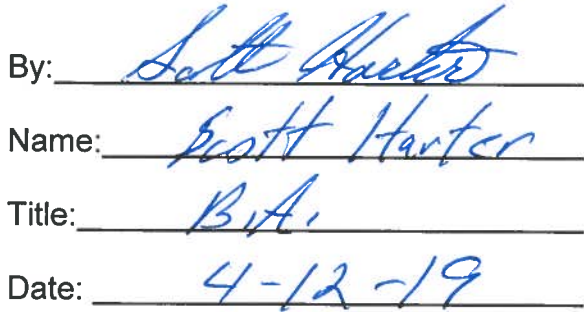 By: Scott Harter
Name: Scott Harter
Title: B.A.
Date: 4-12-19